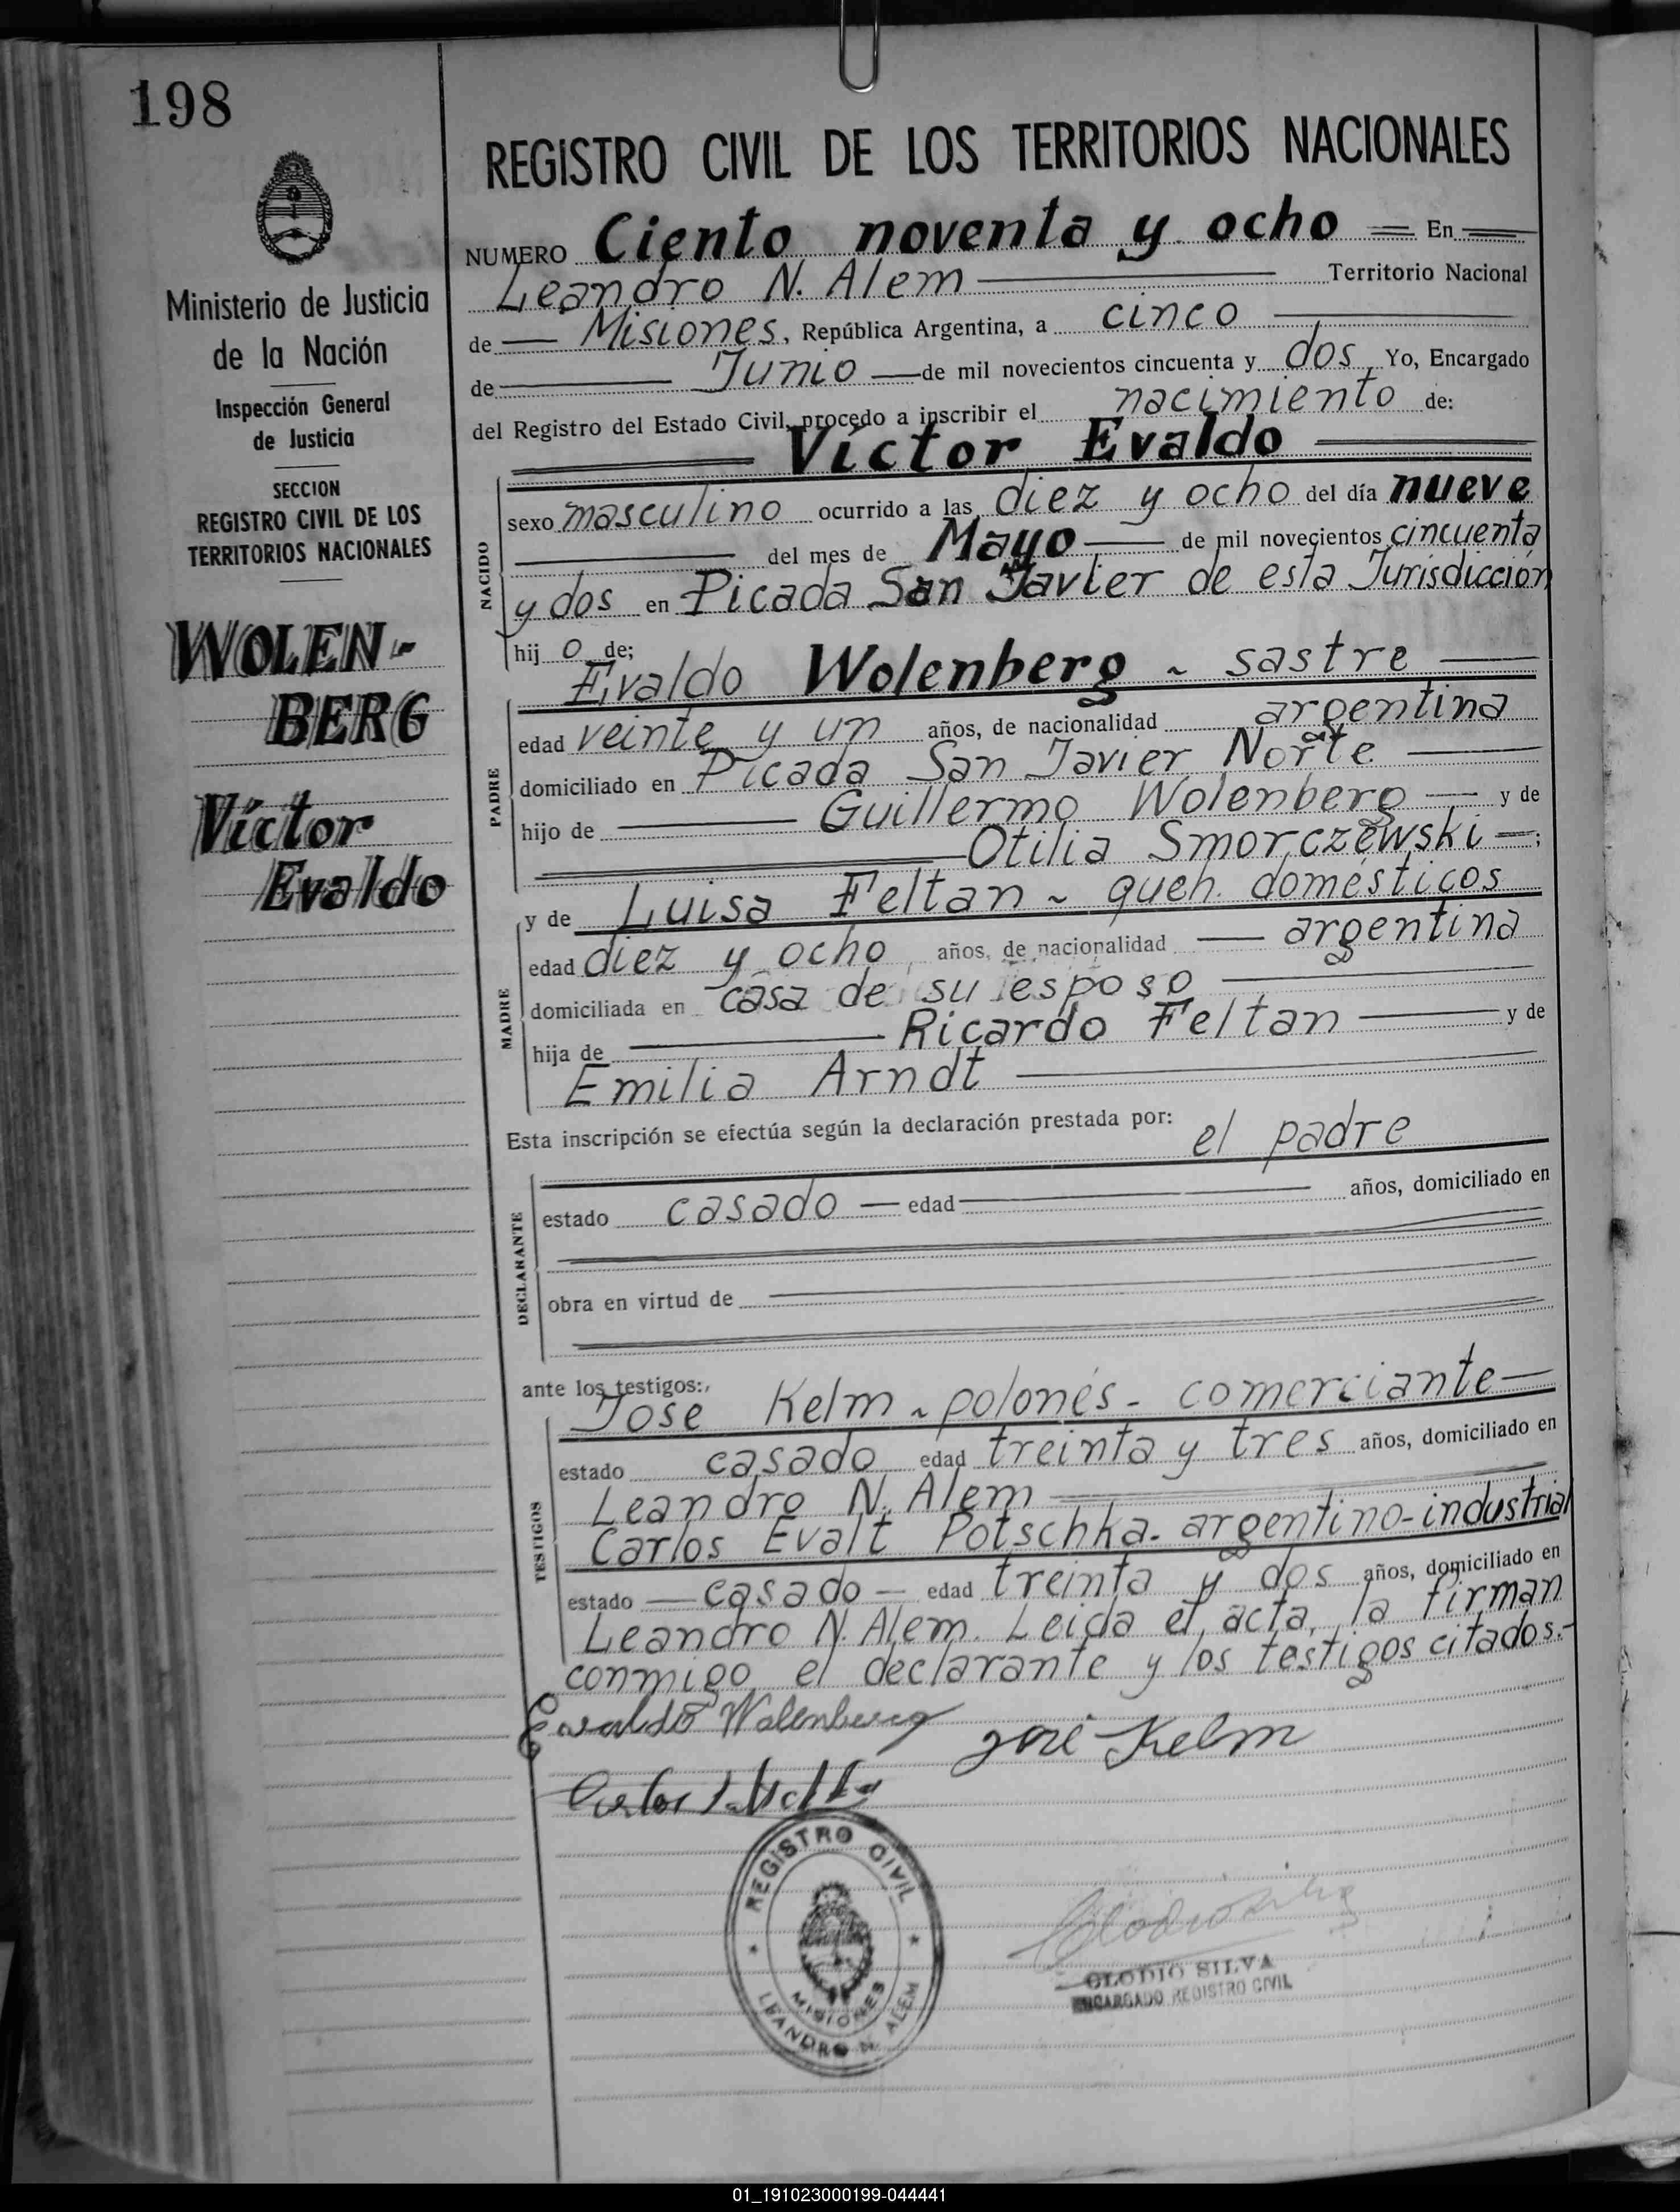 198
REGISTRO CIVIL DE LOS TERRITORIOS NACIONALES
Ministerio de Justicia
de la Nación
Inspección General
de Justicia
SECCION
REGISTRO CIVIL DE LOS
TERRITORIOS NACIONALES
WOLEN-
BERG
Víctor
Evaldo
NUMERO Ciento noventa y ocho En
Leandro N. Alem Territorio Nacional
de Misiones, República Argentina, a cinco
de Junio de mil novecientos cincuenta y dos Yo, Encargado
del Registro del Estado Civil, procedo a inscribir el nacimiento de:
Víctor Evaldo
NACIDO
sexo masculino ocurrido a las diez y ocho del día nueve
del mes de Mayo de mil novecientos cincuenta
y dos en Picada San Javier de esta Jurisdicción
hij o de:
PADRE
Evaldo Wolenberg - sastre
edad veinte y un años, de nacionalidad argentina
domiciliado en Picada San Javier Norte
hijo de Guillermo Wolenberg y de
Otilia Smorczewski ;
MADRE
y de Luisa Feltan - queh. domésticos
edad diez y ocho años, de nacionalidad argentina
domiciliada en casa de su esposo
hija de Ricardo Feltan y de
Emilia Arndt
Esta inscripción se efectúa según la declaración prestada por: el padre
DECLARANTE
estado casado edad años, domiciliado en
obra en virtud de
ante los testigos:
TESTIGOS
José Kelm - polonés - comerciante
estado casado edad treinta y tres años, domiciliado en
Leandro N. Alem
Carlos Evalt Potschka - argentino - industrial
estado casado edad treinta y dos años, domiciliado en
Leandro N. Alem. Leida el acta, la firman
conmigo el declarante y los testigos citados.-
Evaldo Wolenberg José Kelm
Carlos
REGISTRO CIVIL
MISIONES
LEANDRO N. ALEM
CLODIO SILVA
ENCARGADO REGISTRO CIVIL
01_191023000199-044441